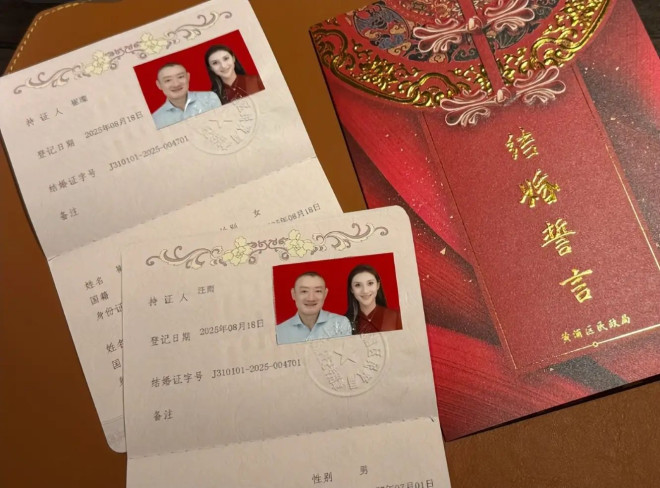 持证人
登记日期 2025年08月18日
结婚证字号 J310101-2025-004701
备注
女
08月18日
姓名
国籍
身份证
姓名
国
持证人 汪雨
登记日期 2025年08月18日
结婚证字号 J310101-2025-004701
备注
性别 男
07月01日
结婚誓言
黄浦区民政局